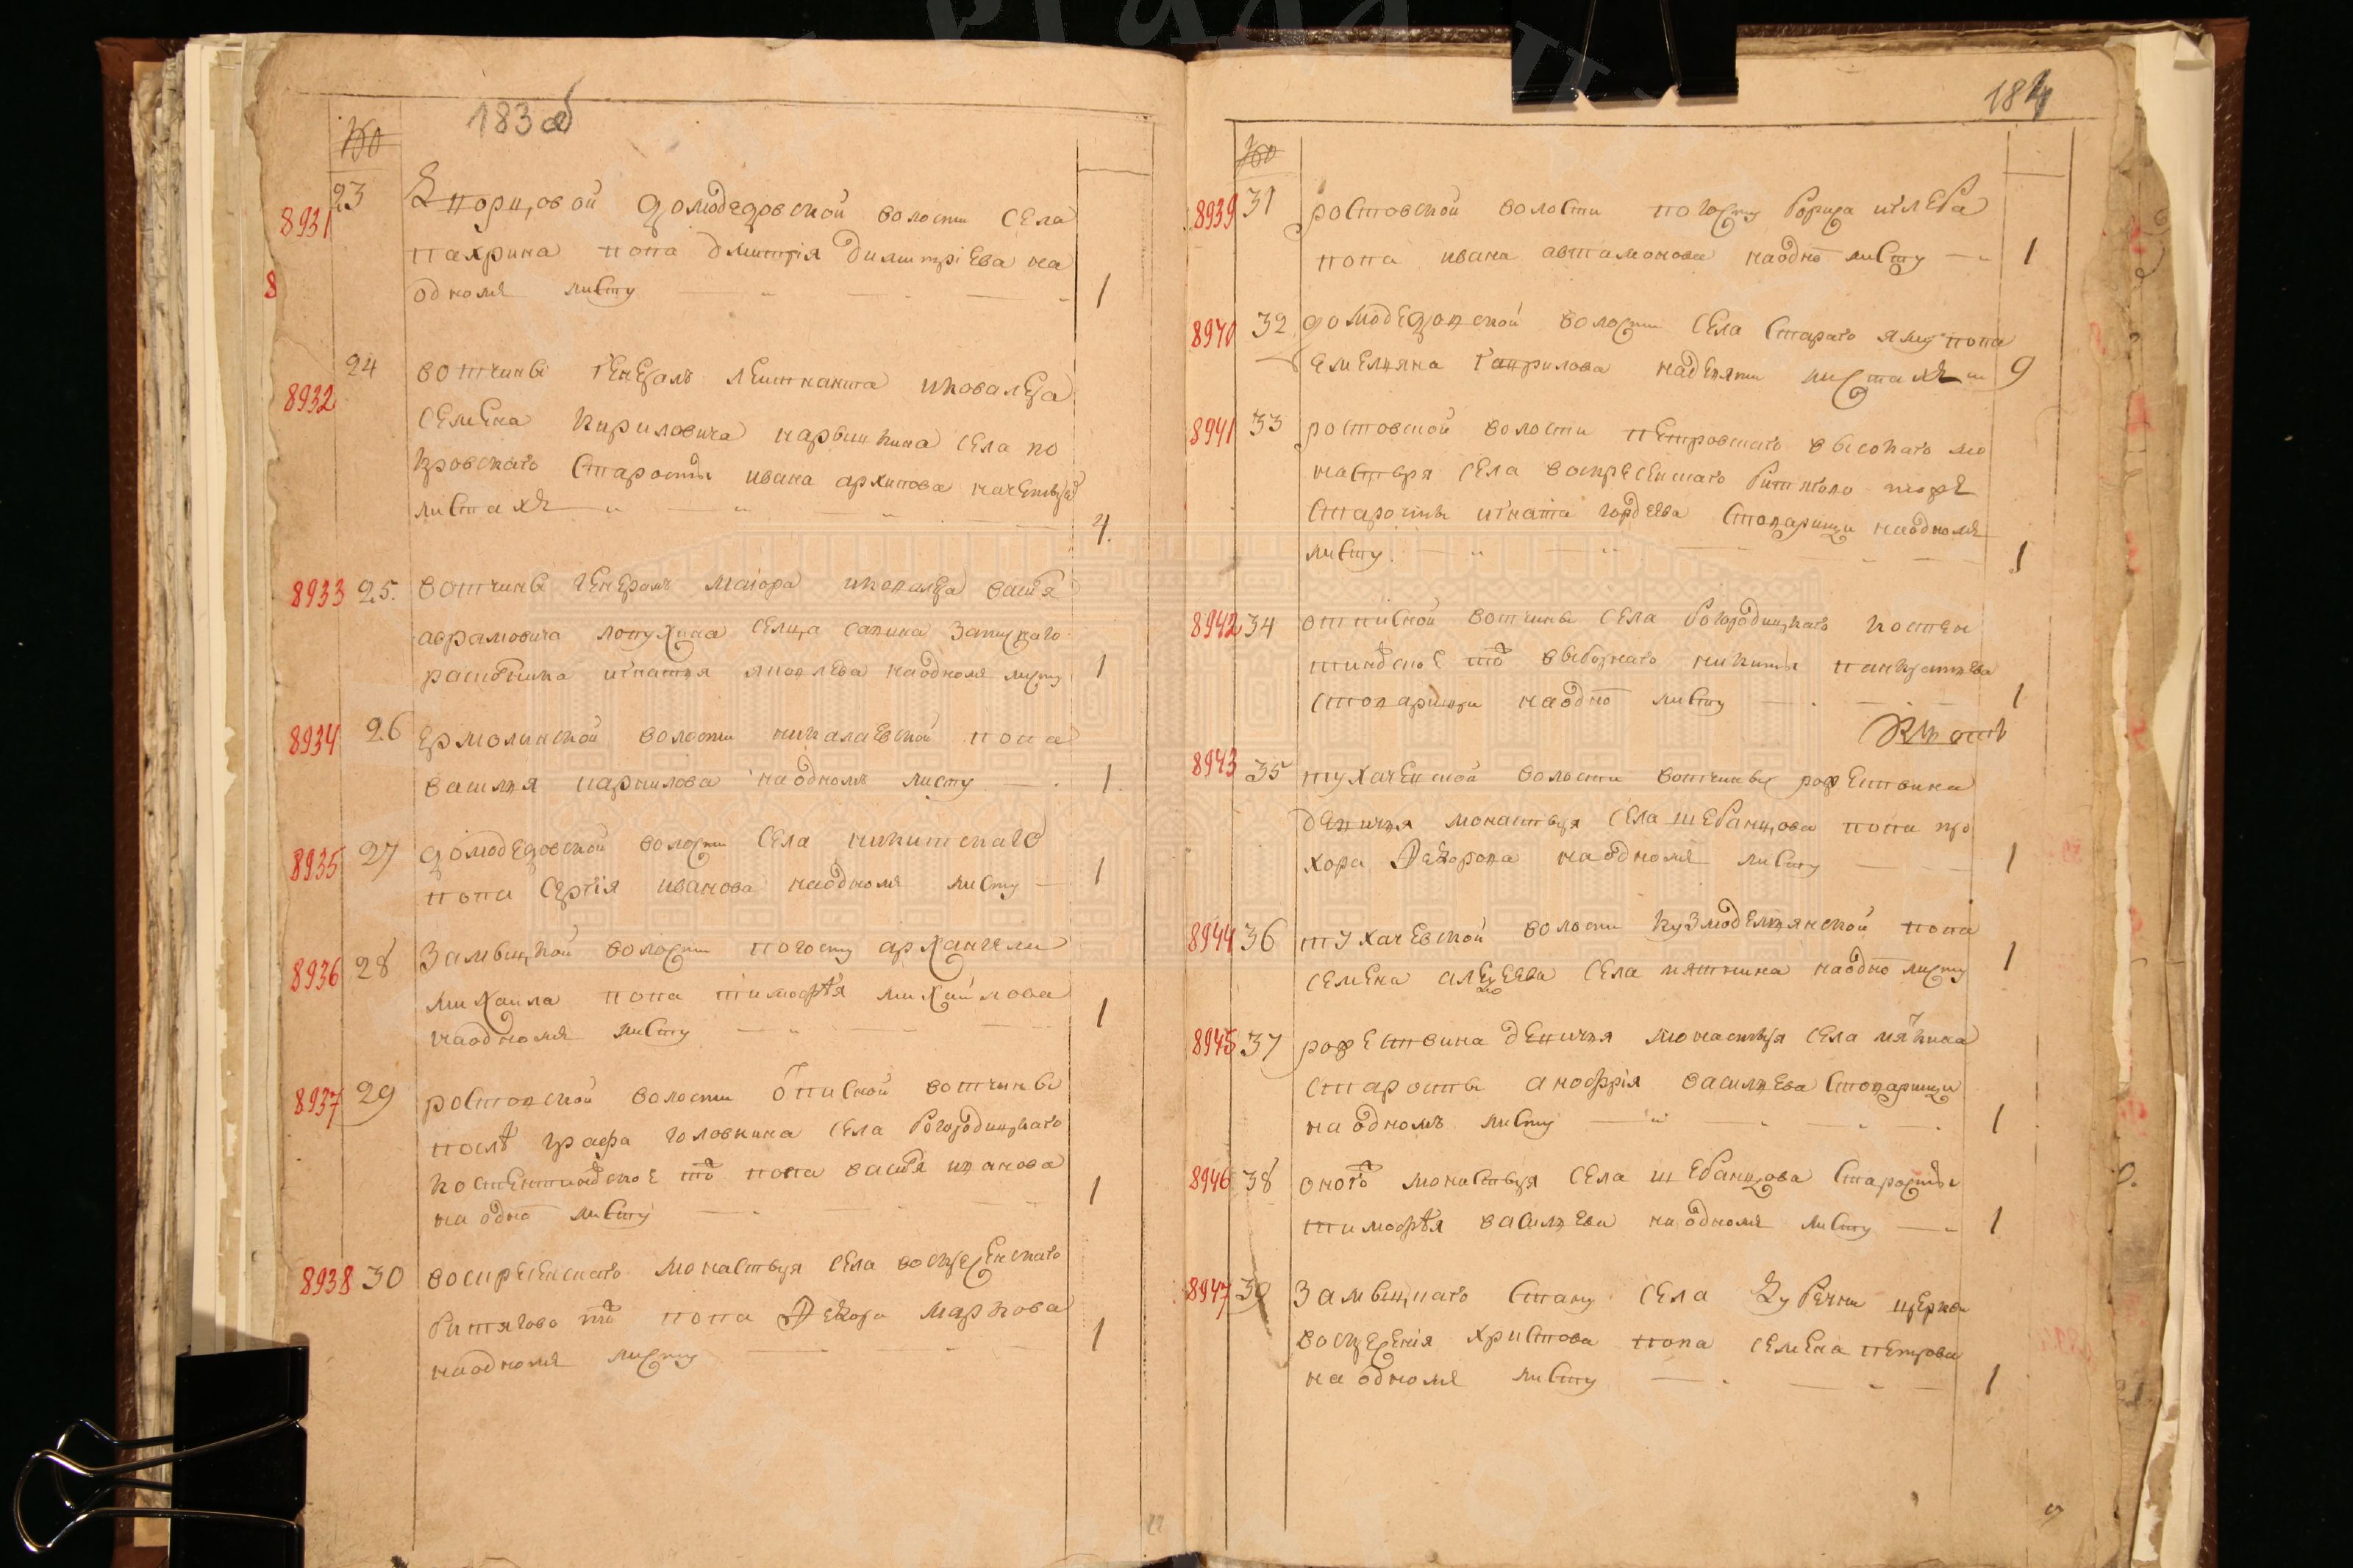 183 об
750
8931 23 Дворцовой домодедовской волости села
пахрина попа дмитрия димитриева на
одномъ листу 1
8
8932 24 вотчины генералъ леитнанта икавалера
семена кириловича нарышкина села по
кровскаго старосты ивана архипова начетырех
листахъ 4.
8933 25. вотчины генералъ маиора икавалера васья
аврамовича лопухина селца сапина
игнатья яковлева наодномъ листу 1
8934 26 ермолинской волости николаевской попа
василья карпилова наодномъ листу 1
8935 27 домодедовской волости села никитскаго
попа сергия иванова наодномъ листу 1
8936 28 Замыцкой волости погосту архангела
михаила попа тимофѣя михаилова
наодномъ листу 1
8937 29 ростовской волости описной вотчины
послѣ графа головкина села богородицкаго
костентиновское тоо попа васья иванова
на одно листу 1
8938 30 воскресенскаго монастыря села воскресенскаго
битягово тоо попа Федора Маркова
наодномъ листу 1
184
760
8939 31 ростовской волости погосту бориса иглеба
попа ивана автамонова наодно листу 1
8940 32 домодедовской волости села Стараго яму попа
емельяна гаврилова надевяти листахъ 9
8941 33 ростовской волости петровскаго высокаго мо
настыря села воскресенскаго битягово тоже
старосты игната гордеева стоварищи наодномъ
листу 1
8942 34 отписной вотчины села богородицкаго костен
тиновское тоо выборнаго никиты панкратьева
стоварищи наодно листу 1
8943 35 тухачевской волости вотчины рожествина
девичья монастыря села шебанцова попа про
хора Федорова наодномъ листу 1
8944 36 тухачевской волости кузмодемьянской попа
семена алексеева села наодно листу 1
8945 37 рожествина девичья монастыря села мячкина
старосты анофрия васильева стоварищи
на одномъ листу 1
8946 38 оного монастыря села шебанцова старосты
тимофѣя васильева на одномъ листу 1
8947 39 Замыцкаго стану села церкви
воскресения христова попа семена петрова
на одномъ листу 1